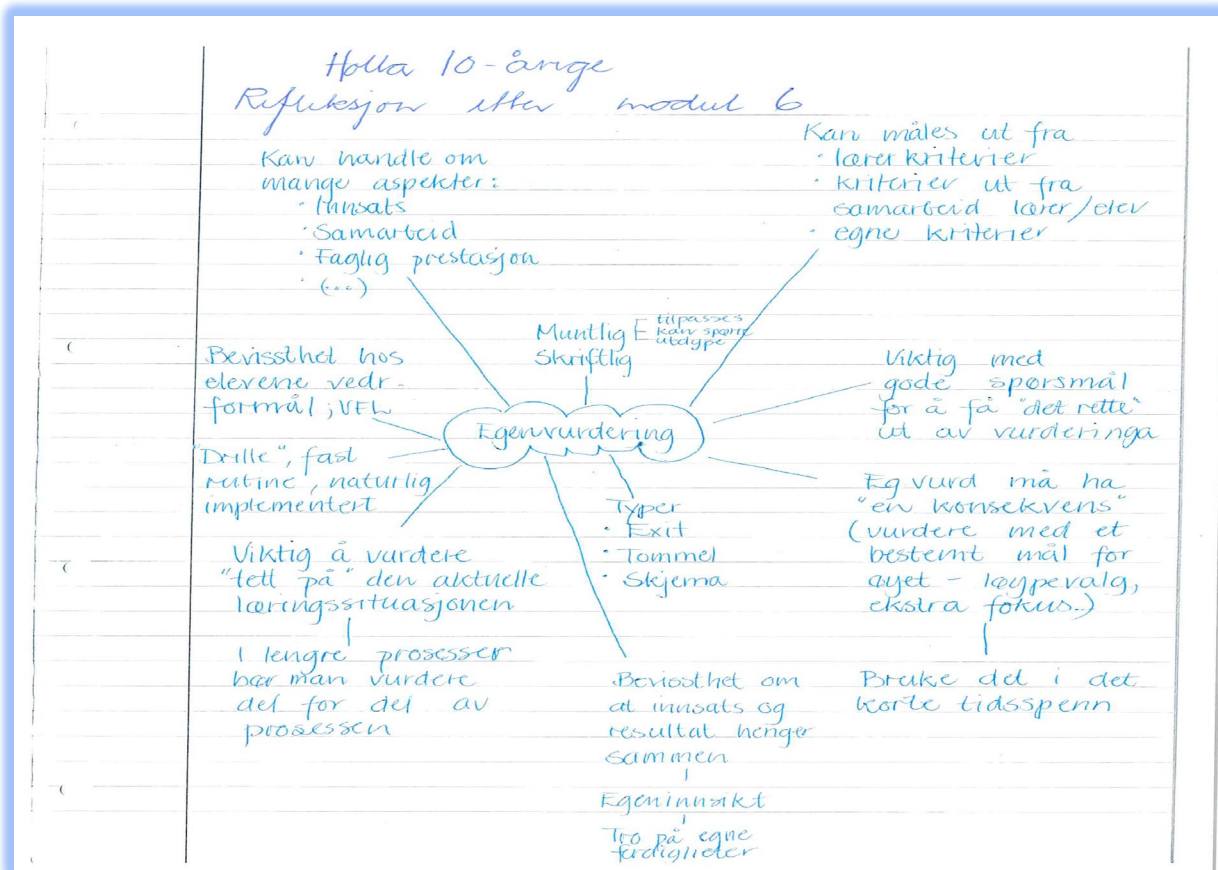 Holla 10-årige
Refleksjon etter modul 6
Kan handle om
mange aspekter:
· Innsats
· Samarbeid
· Faglig prestasjon
· (...)
Kan måles ut fra
· lærerkriterier
· kriterier ut fra
samarbeid lærer/elev
· egne kriterier
Muntlig E tilpasses
kan spørre
utdype
Skriftlig
Bevissthet hos
elevene vedr.
formål; VFL
Viktig med
gode spørsmål
for å få "det rette"
ut av vurderinga
Egenvurdering
"Drille", fast
rutine, naturlig
implementert
Typer
· Exit
· Tommel
· Skjema
Eg vurd må ha
"en konsekvens"
(vurdere med et
bestemt mål for
øyet - løypevalg,
ekstra fokus..)
Viktig å vurdere
"tett på" den aktuelle
læringssituasjonen
I lengre prosesser
bør man vurdere
del for del av
prosessen
Bevissthet om
at innsats og
resultat henger
sammen
Egeninnsikt
Tro på egne
ferdigheter
Bruke det i det
korte tidsspenn